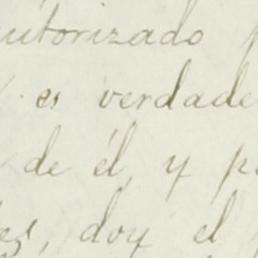 autorizado p
y es verdade
de él, y p
es, doy el